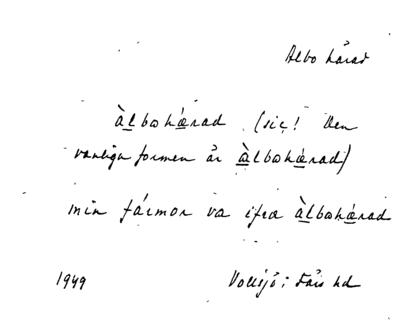 Albo härad
àlbohǽrad (sic! Den
vanliga formen är àlbohǽrad)
min fármor va ifra àlbohǽrad
1949 Vollsjö; Färs hd